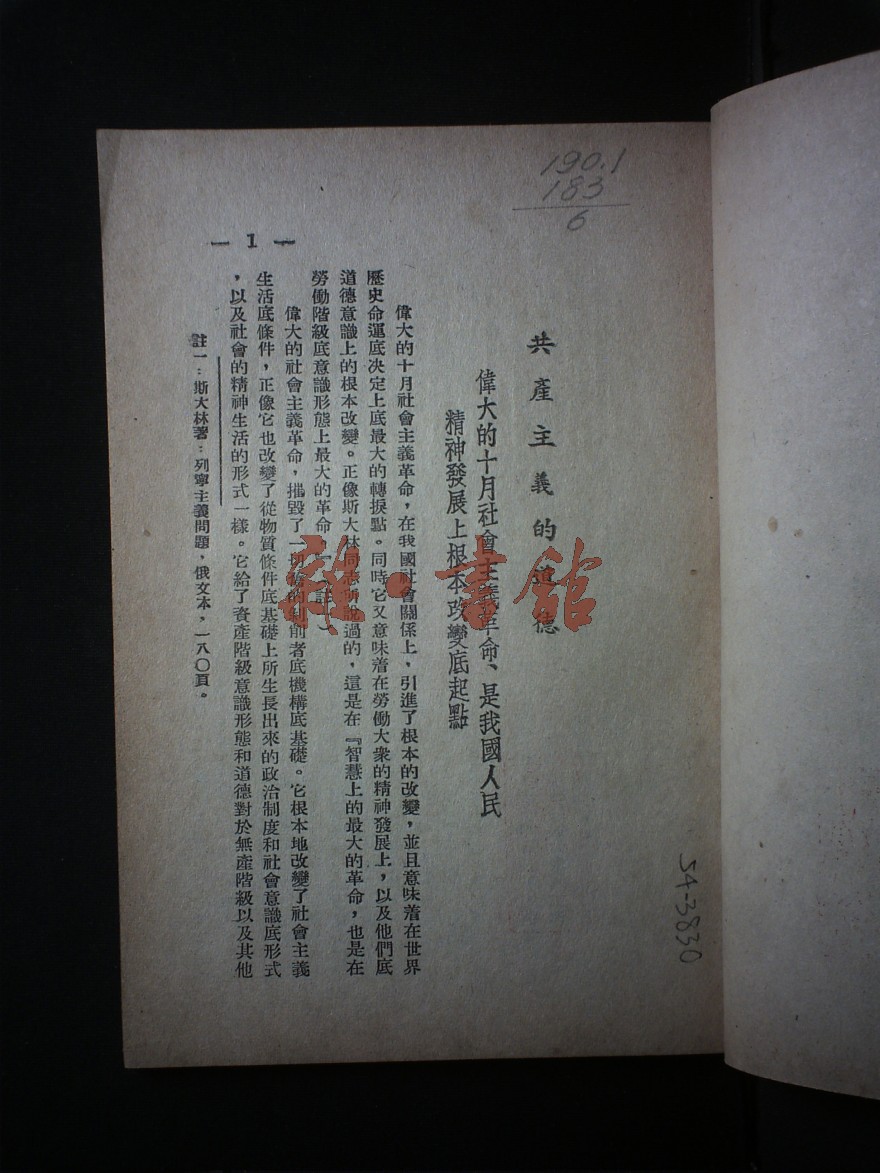 190.1
183
6
共產主義的道德
偉大的十月社會主義革命、是我國人民
精神發展上根本改變底起點
偉大的十月社會主義革命，在我國社會關係上，引進了根本的改變，並且意味着在世界
歷史命運底決定上底最大的轉捩點。同時它又意味着在勞働大衆的精神發展上，以及他們底
道德意識上的根本改變。正像斯大林同志所說過的，這是在『智慧上的最大的革命，也是在
勞働階級底意識形態上最大的革命』（註一）
偉大的社會主義革命，摧毀了一切舊的剝削者底機構底基礎。它根本地改變了社會主義
生活底條件，正像它也改變了從物質條件底基礎上所生長出來的政治制度和社會意識底形式
，以及社會的精神生活的形式一樣。它給了資產階級意識形態和道德對於無產階級以及其他
註一：斯大林著：列寧主義問題，俄文本，一八〇頁。
— 1 —
SA-3830
雜·書館